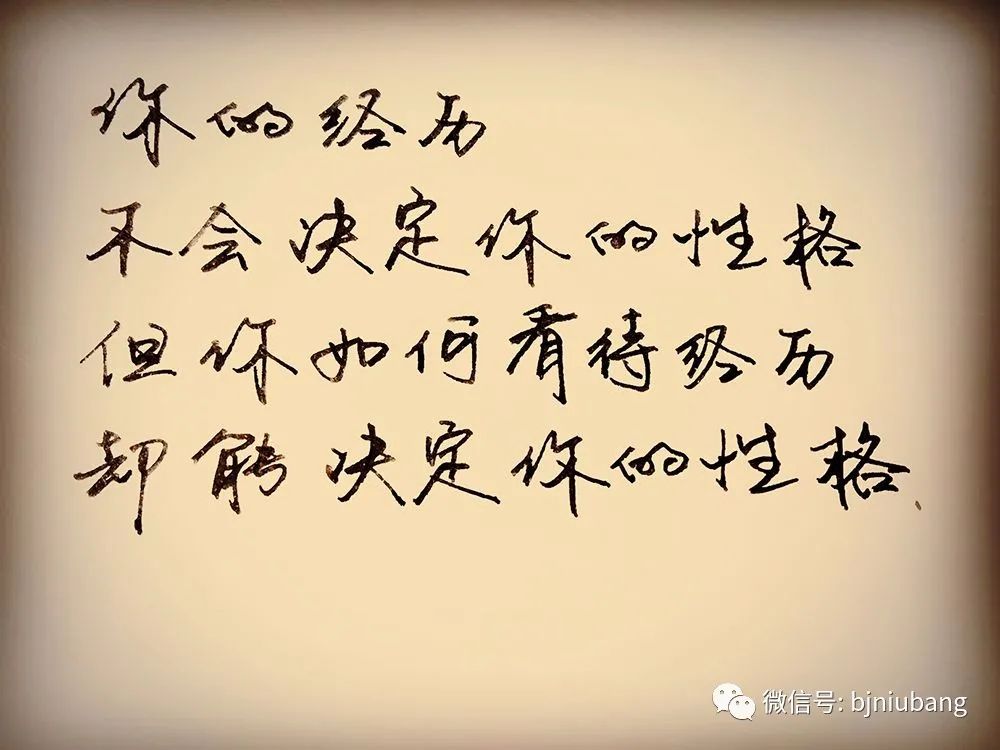 你的经历
不会决定你的性格
但你如何看待经历
却能决定你的性格、
微信号: bjniubang